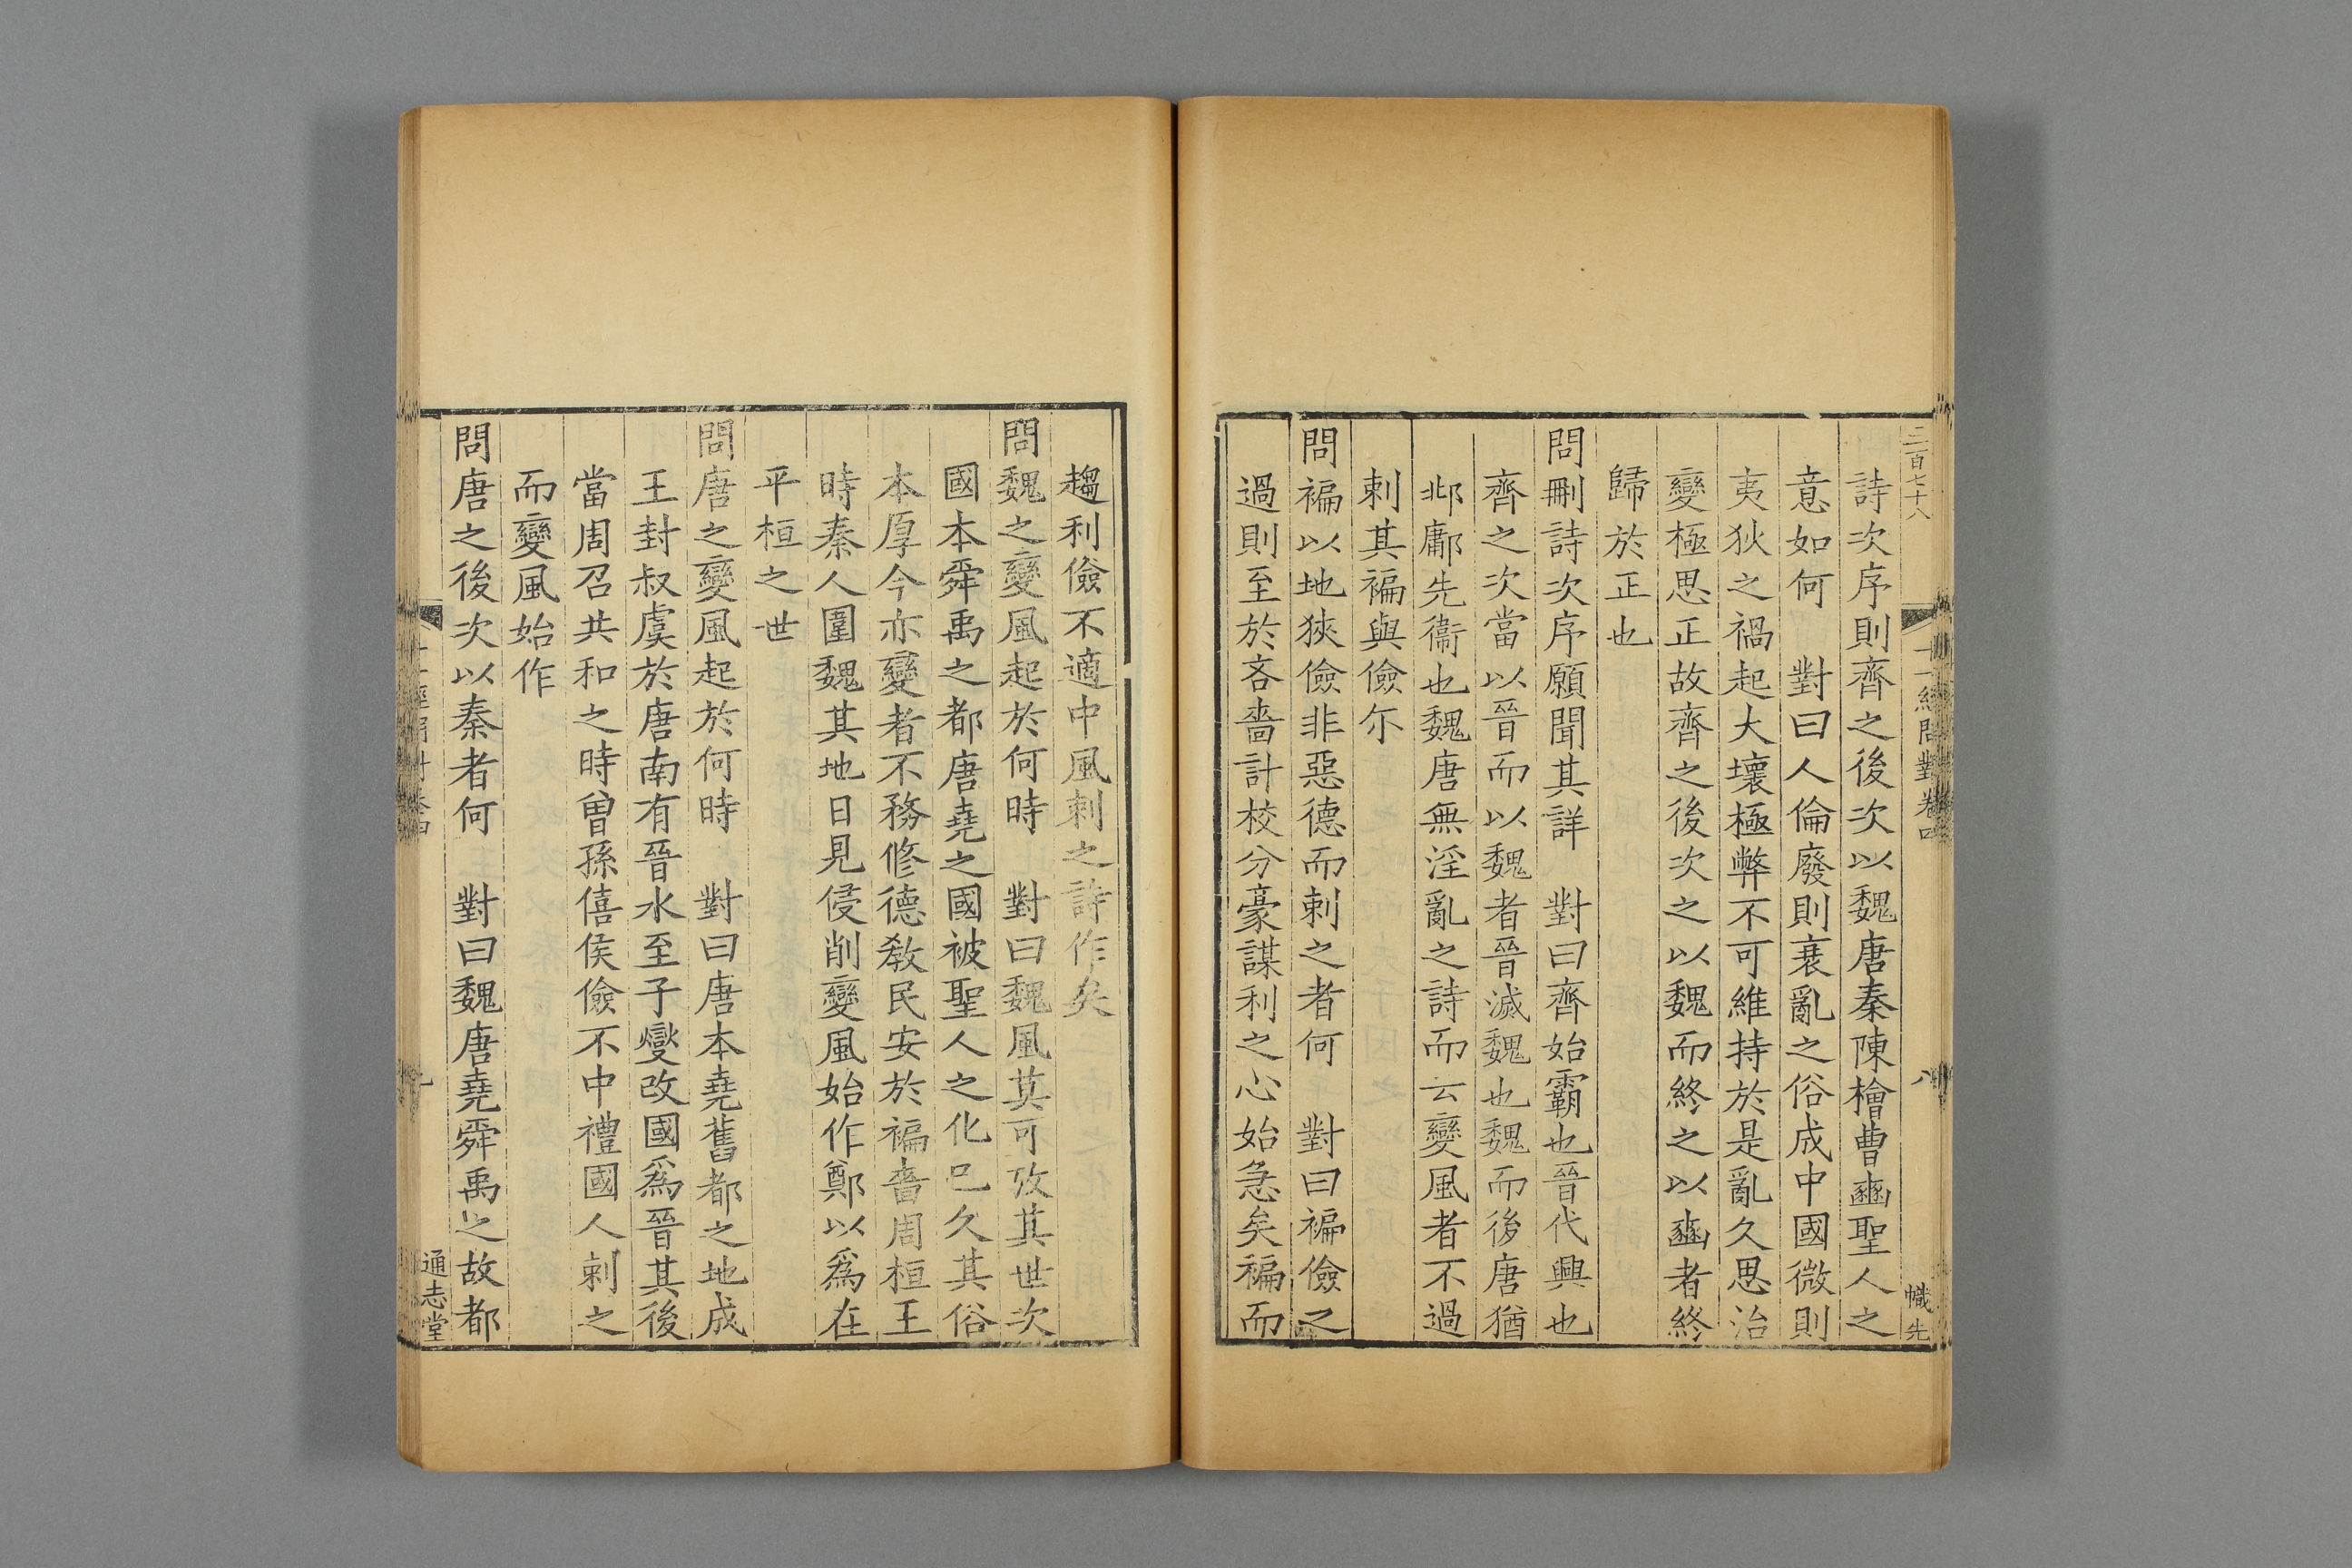 三百七十八
十一經問對卷四
八
幟先
詩次序則齊之後次以魏唐秦陳檜曹豳聖人之
意如何　對曰人倫廢則衰亂之俗成中國微則
夷狄之禍起大壞極弊不可維持於是亂久思治
變極思正故齊之後次之以魏而終之以豳者終
歸於正也
問刪詩次序願聞其詳　對曰齊始霸也晉代興也
齊之次當以晉而以魏者晉滅魏也魏而後唐猶
邶鄘先衞也魏唐無淫亂之詩而云變風者不過
刺其褊與儉尒
問褊以地狹儉非惡德而刺之者何　對曰褊儉之
過則至於吝嗇計校分豪謀利之心始急矣褊而
趨利儉不適中風刺之詩作矣
問魏之變風起於何時　對曰魏風莫可攷其世次
國本舜禹之都唐堯之國被聖人之化巳久其俗
本厚今亦變者不務修德敎民安於褊嗇周桓王
時秦人圍魏其地日見侵削變風始作鄭以爲在
平桓之世
問唐之變風起於何時　對曰唐本堯舊都之地成
王封叔虞於唐南有晉水至子燮改國爲晉其後
當周召共和之時曾孫僖侯儉不中禮國人刺之
而變風始作
問唐之後次以秦者何　對曰魏唐堯舜禹之故都
通志堂